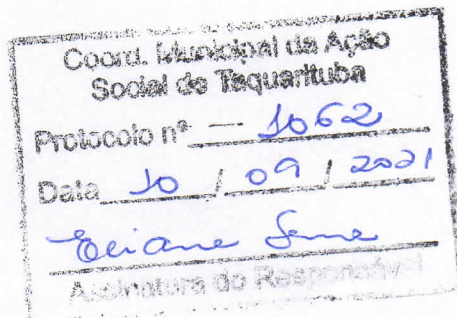 Coord. Municipal da Ação
Social de Taquarituba
Protocolo nº — 1062
Data 10 / 09 / 2021
Eliane
Assinatura do Responsável